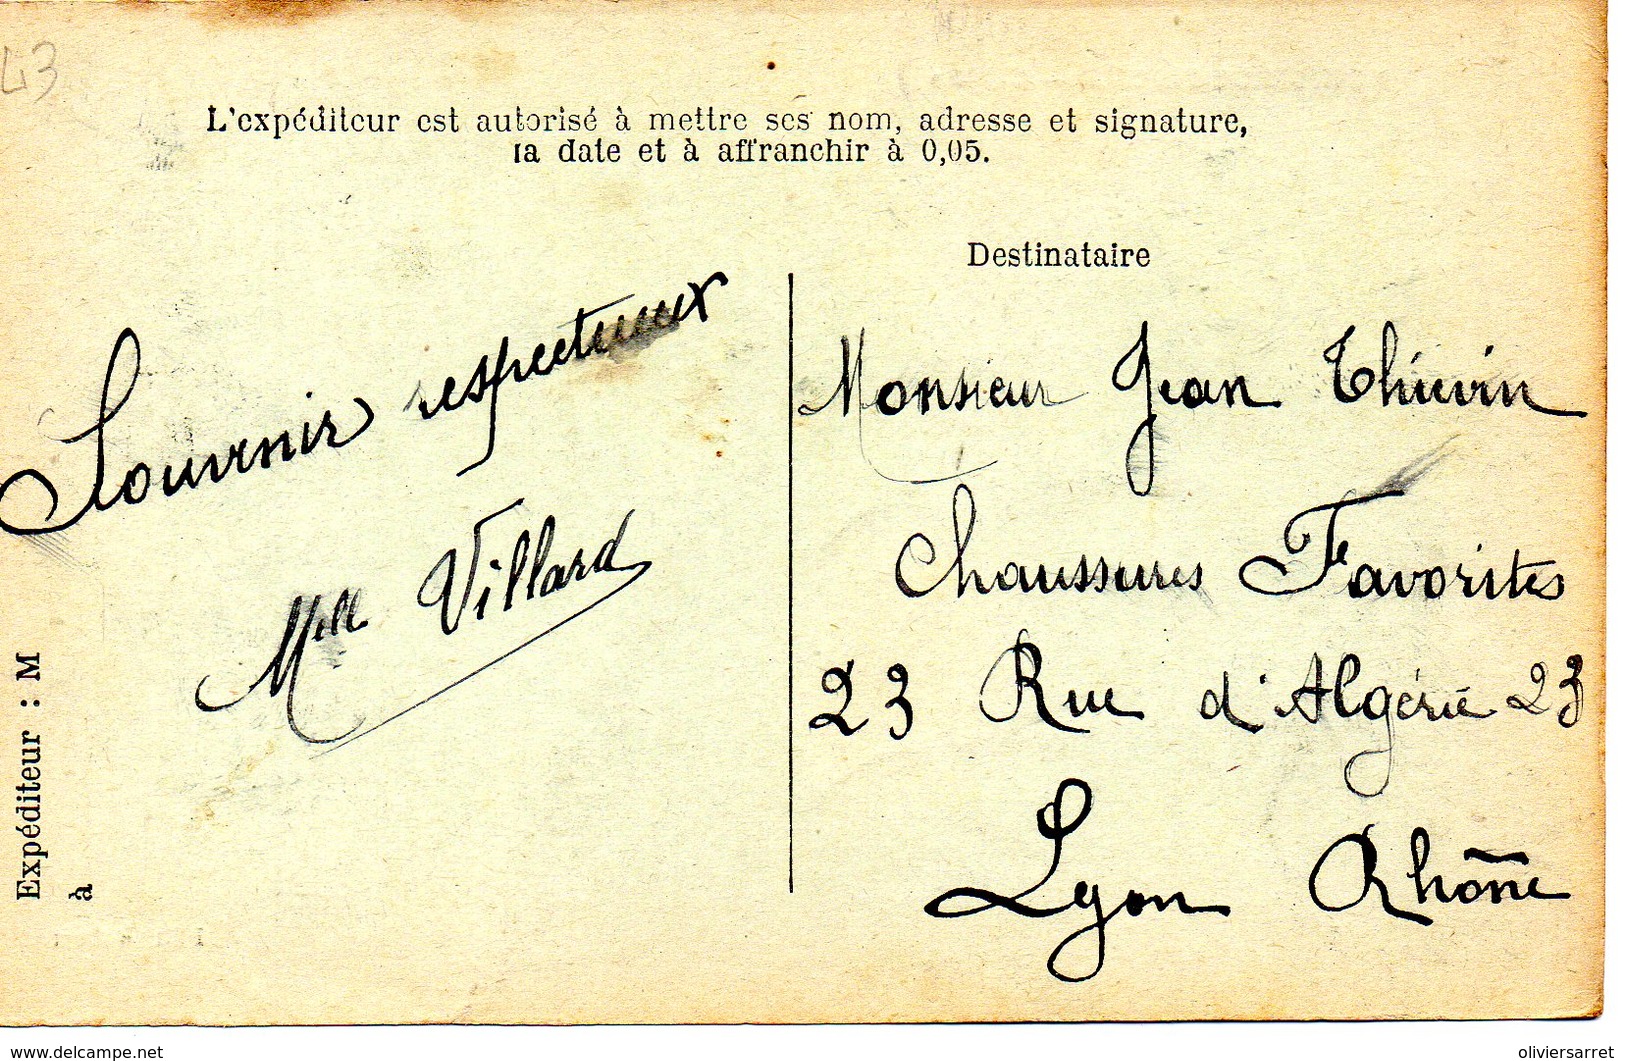 43
L'expéditeur est autorisé à mettre ses nom, adresse et signature,
la date et à affranchir à 0,05.
Destinataire
Souvenir respectueux
Mlle Villard
Expéditeur : M
à
Monsieur Jean Thievin
Chaussures Favorites
23 Rue d'Algérie 23
Lyon Rhône
www.delcampe.net
oliviersarret